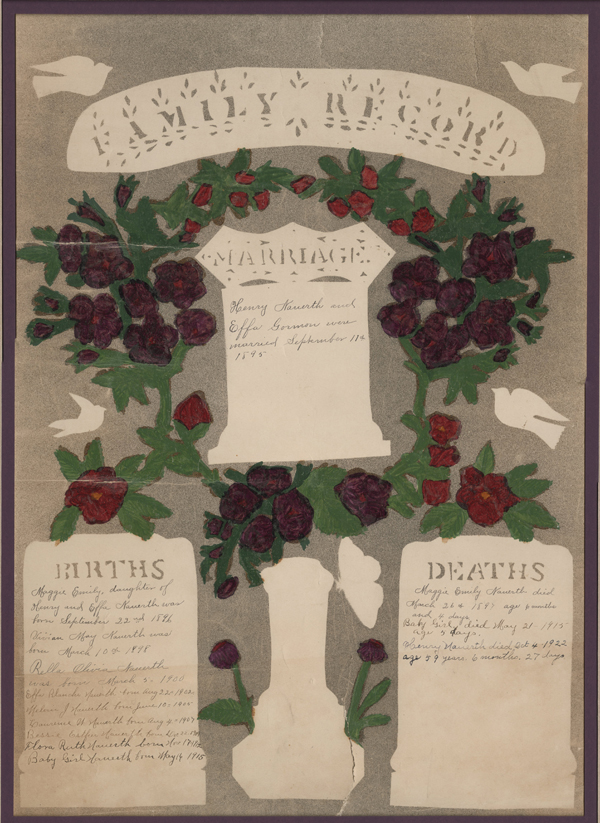 FAMILY RECORD
MARRIAGE.
Henry Nauerth and
Effa Gormon was
married September 11th
1895
BIRTHS
Maggie Emily, daughter of
Henry and Effa Nauerth was
born September 22nd 1896
Vivian May Nauerth was
born March 10th 1898
Rella Olivia Nauerth
was born March 5 - 1900
Effa Blanche Nauerth born Aug 22-1902
Nauerth born June 10-
Nauerth born Aug 4-1907
Nauerth born Dec
Flora Ruth Nauerth born Nov
Baby Girl Nauerth born May 16 1915
DEATHS
Maggie Emily Nauerth died
March 26th 1897 age 6 months
and 4 days
Baby Girl died May 21-1915
age 5 days.
Henry Nauerth died Oct 4 1922
age 59 years. 6 months. 27 days